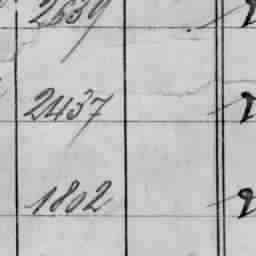 2639
2437
1802